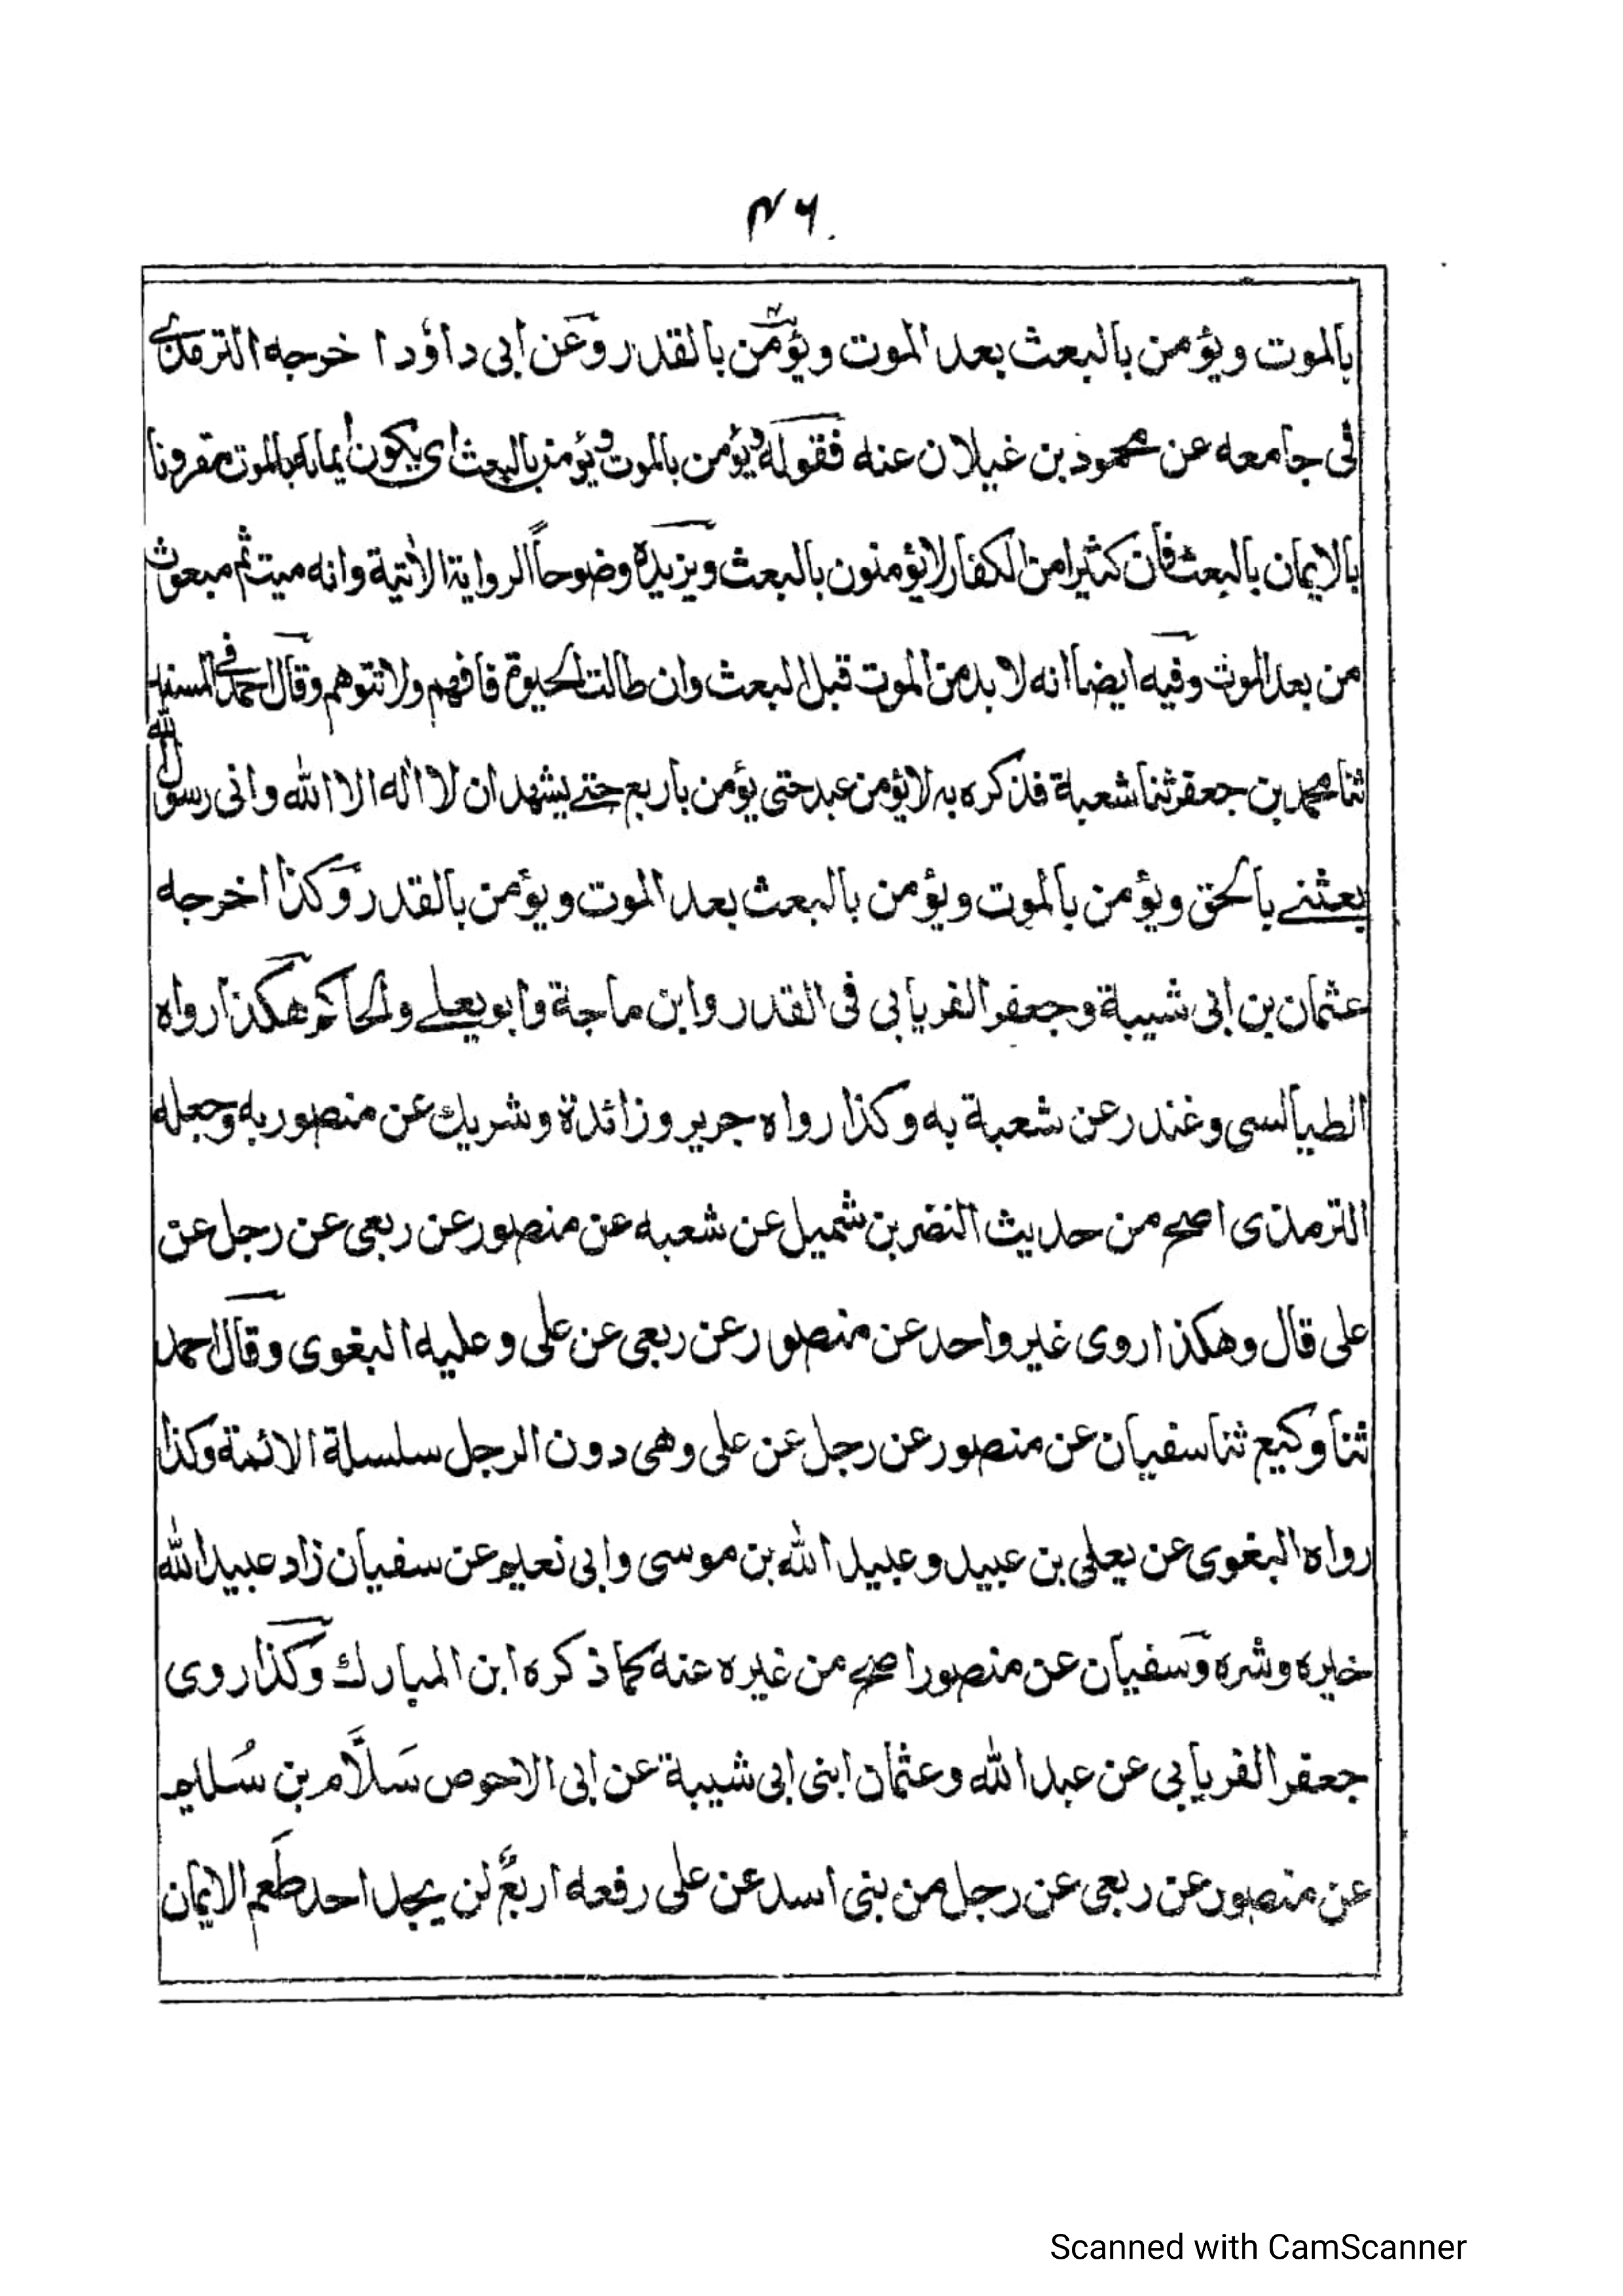 ۴۶
بالموت ويؤمن بالبعث بعد الموت ويؤمن بالقدر وعن ابى داؤد اخرجه الترمذي
فى جامعه عن محمود بن غيلان عنه فقوله ويؤمن بالموت ويؤمن بالبعث اى يكون ايمانه بالموت مقرونا
بالايمان بالبعث فان كثيرا من الكفار لايؤمنون بالبعث ويزيده وضوحاً الرواية الأتية وانه ميت ثم مبعوث
من بعد الموت وفيه ايضا انه لا بد من الموت قبل البعث وان طالت الحيوة فافهم ولا تتوهم وقال احمد فى المسند
ثنا محمد بن جعفر ثنا شعبة فذكره به لايؤمن عبد حتى يؤمن باربع حتے يشهد ان لا اله الا الله وانى رسول الله
بعثنے بالحق ويؤمن بالموت ويؤمن بالبعث بعد الموت ويؤمن بالقدر وكذا اخرجه
عثمان بن ابى شيبة وجعفر الفريابي فى القدر وابن ماجة وابو يعلے والحاكم هكذا رواه
الطيالسى وغندر عن شعبة به وكذا رواه جرير وزائدة وشريك عن منصور به وجعله
الترمذى اصح من حديث النضر بن شميل عن شعبه عن منصور عن ربعى عن رجل عن
على قال وهكذا روى غير واحد عن منصور عن ربعى عن على وعليه البغوى وقال احمد
ثنا وكيع ثنا سفيان عن منصور عن رجل عن على وهى دون الرجل سلسلة الائمة وكذا
رواه البغوى عن يعلى بن عبيد وعبيد الله بن موسى وابى نعيم عن سفيان زاد عبيد الله
خيره وشره وسفيان عن منصور اصح من غيره عنه كما ذكره ابن المبارك وكذا روى
جعفر الفريابي عن عبد الله وعثمان ابنى ابى شيبة عن ابى الاحوص سَلَّام بن سُليم
عن منصور عن ربعى عن رجل من بنى اسد عن على رفعه اربعٌ لن يجد احد طَعم الايمان
Scanned with CamScanner